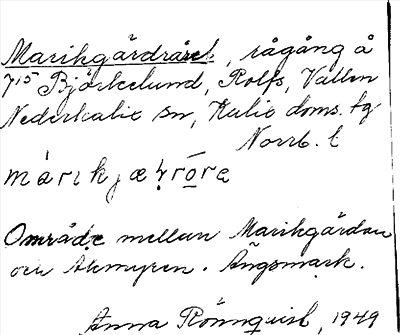 Marikgårdsrået, rågång å
715 Björkelund, Rolfs, Vallen
Nederkalix sn, Kalix doms. tg
Norrb. l
Område mellan Marikgården
och Akmyren. Ängsmark.
Anna Rönnqvist, 1949